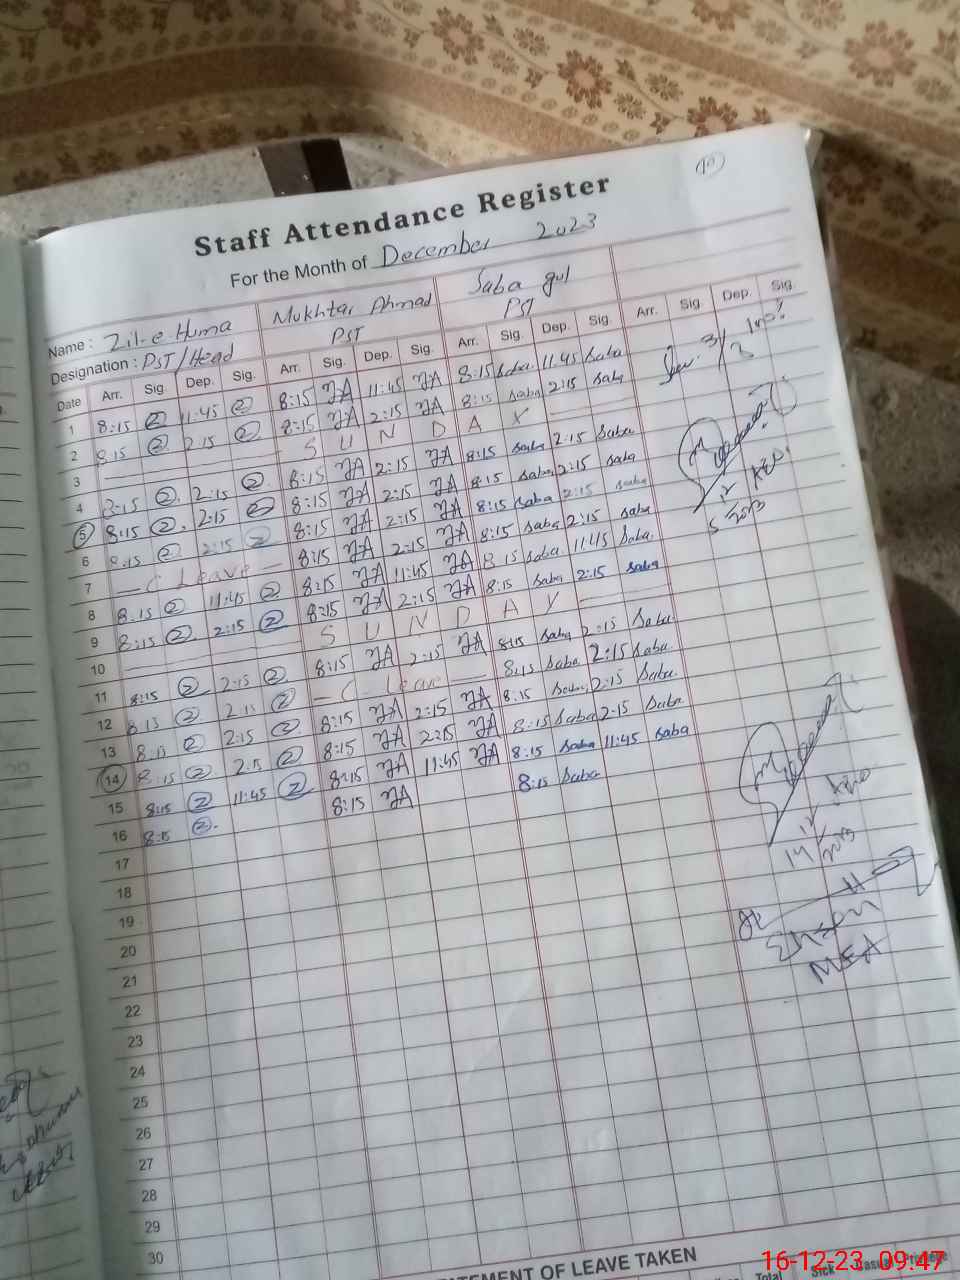 Staff Attendance Register
For the Month of December 2023
Name : Zil-e-Huma Mukhtar Ahmad Saba gul
Designation : PST/Head PST PST
Date Arr. Sig. Dep. Sig. Arr. Sig. Dep. Sig. Arr. Sig. Dep. Sig. Arr. Sig. Dep. Sig.
1 8:15 11:45 8:15 11:45 8:15 Saba 11:45 Saba
2 8:15 2:15 8:15 2:15 8:15 Saba 2:15 Saba
3 SUNDAY
4 2:15 2:15 8:15 2:15 8:15 Saba 2:15 Saba
5 8:15 2:15 8:15 2:15 8:15 Saba 2:15 Saba
6 8:15 2:15 8:15 2:15 8:15 Saba 2:15 Saba
7 C Leave 8:15 2:15 8:15 Saba 2:15 Saba
8 8:15 11:45 8:15 11:45 8:15 Saba 11:45 Saba
9 8:15 2:15 8:15 2:15 8:15 Saba 2:15 Saba
10 SUNDAY
11 8:15 2:15 8:15 2:15 8:15 Saba 2:15 Saba
12 8:15 2:15 C Leave 8:15 Saba 2:15 Saba
13 8:15 2:15 8:15 2:15 8:15 Saba 2:15 Saba
14 8:15 2:15 8:15 2:15 8:15 Saba 2:15 Saba
15 8:15 11:45 8:15 11:45 8:15 Saba 11:45 Saba
16 8:15 8:15 8:15 Saba
17
18
19
20
21
22
23
24
25
26
27
28
29
30
MEA
STATEMENT OF LEAVE TAKEN
Total Sick Casual Privilege
16-12-23 09:47